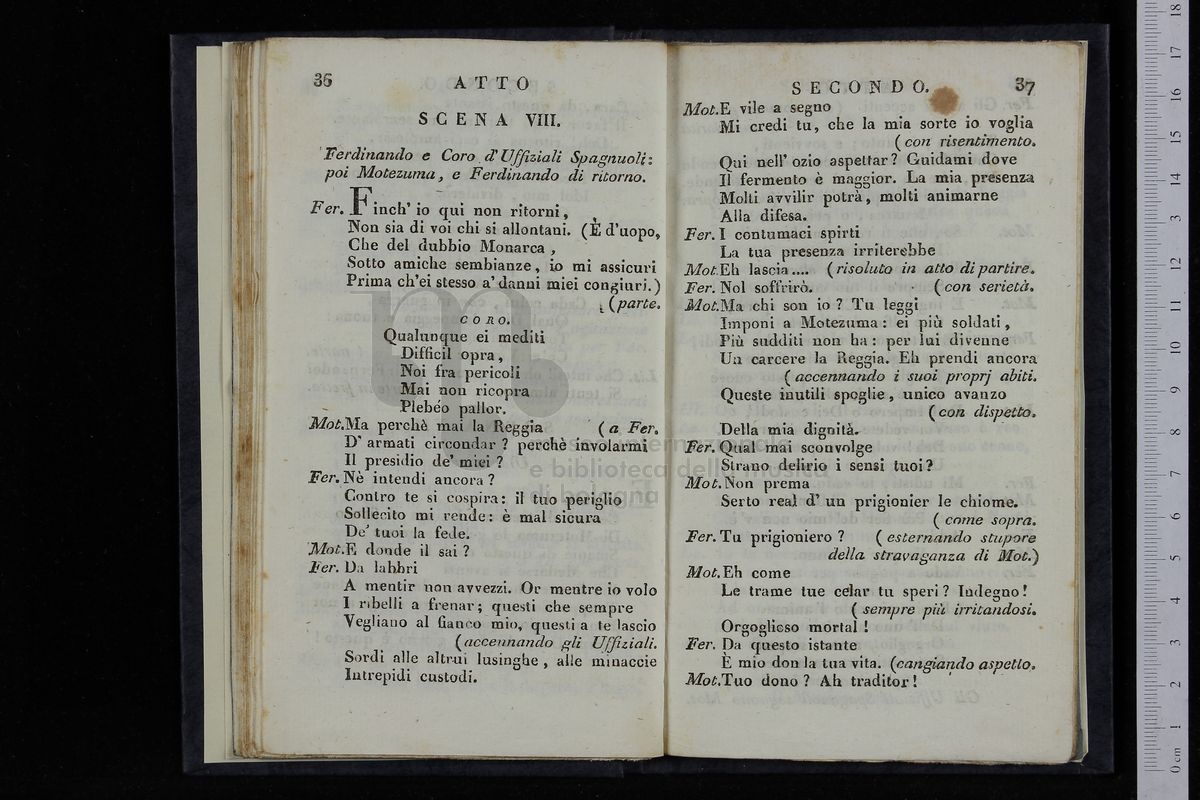 36
ATTO
SCENA VIII.
Ferdinando e Coro d'Uffiziali Spagnuoli:
poi Motezuma, e Ferdinando di ritorno.
Fer. Finch' io qui non ritorni,
Non sia di voi chi si allontani. (È d'uopo,
Che del dubbio Monarca,
Sotto amiche sembianze, io mi assicuri
Prima ch'ei stesso a' danni miei congiuri.)
(parte.
CORO.
Qualunque ei mediti
Difficil opra,
Noi fra pericoli
Mai non ricopra
Plebéo pallor.
Mot. Ma perchè mai la Reggia (a Fer.
D' armati circondar? perchè involarmi
Il presidio de' miei?
Fer. Nè intendi ancora?
Contro te si cospira: il tuo periglio
Sollecito mi rende: è mal sicura
De' tuoi la fede.
Mot. E donde il sai?
Fer. Da labbri
A mentir non avvezzi. Or mentre io volo
I ribelli a frenar; questi che sempre
Vegliano al fianco mio, questi a te lascio
(accennando gli Uffiziali.
Sordi alle altrui lusinghe, alle minaccie
Intrepidi custodi.
SECONDO.
37
Mot. E vile a segno
Mi credi tu, che la mia sorte io voglia
(con risentimento.
Qui nell' ozio aspettar? Guidami dove
Il fermento è maggior. La mia presenza
Molti avvilir potrà, molti animarne
Alla difesa.
Fer. I contumaci spirti
La tua presenza irriterebbe
Mot. Eh lascia.... (risoluto in atto di partire.
Fer. Nol soffrirò. (con serietà.
Mot. Ma chi son io? Tu leggi
Imponi a Motezuma: ei più soldati,
Più sudditi non ha: per lui divenne
Un carcere la Reggia. Eh prendi ancora
(accennando i suoi proprj abiti.
Queste inutili spoglie, unico avanzo
(con dispetto.
Della mia dignità.
Fer. Qual mai sconvolge
Strano delirio i sensi tuoi?
Mot. Non prema
Serto real d' un prigionier le chiome.
(come sopra.
Fer. Tu prigioniero? (esternando stupore
della stravaganza di Mot.)
Mot. Eh come
Le trame tue celar tu speri? Indegno!
(sempre più irritandosi.
Orgoglioso mortal!
Fer. Da questo istante
È mio don la tua vita. (cangiando aspetto.
Mot. Tuo dono? Ah traditor!
museo internazionale
e biblioteca della musica
di bologna
0 cm 1 2 3 4 5 6 7 8 9 10 11 12 13 14 15 16 17 18